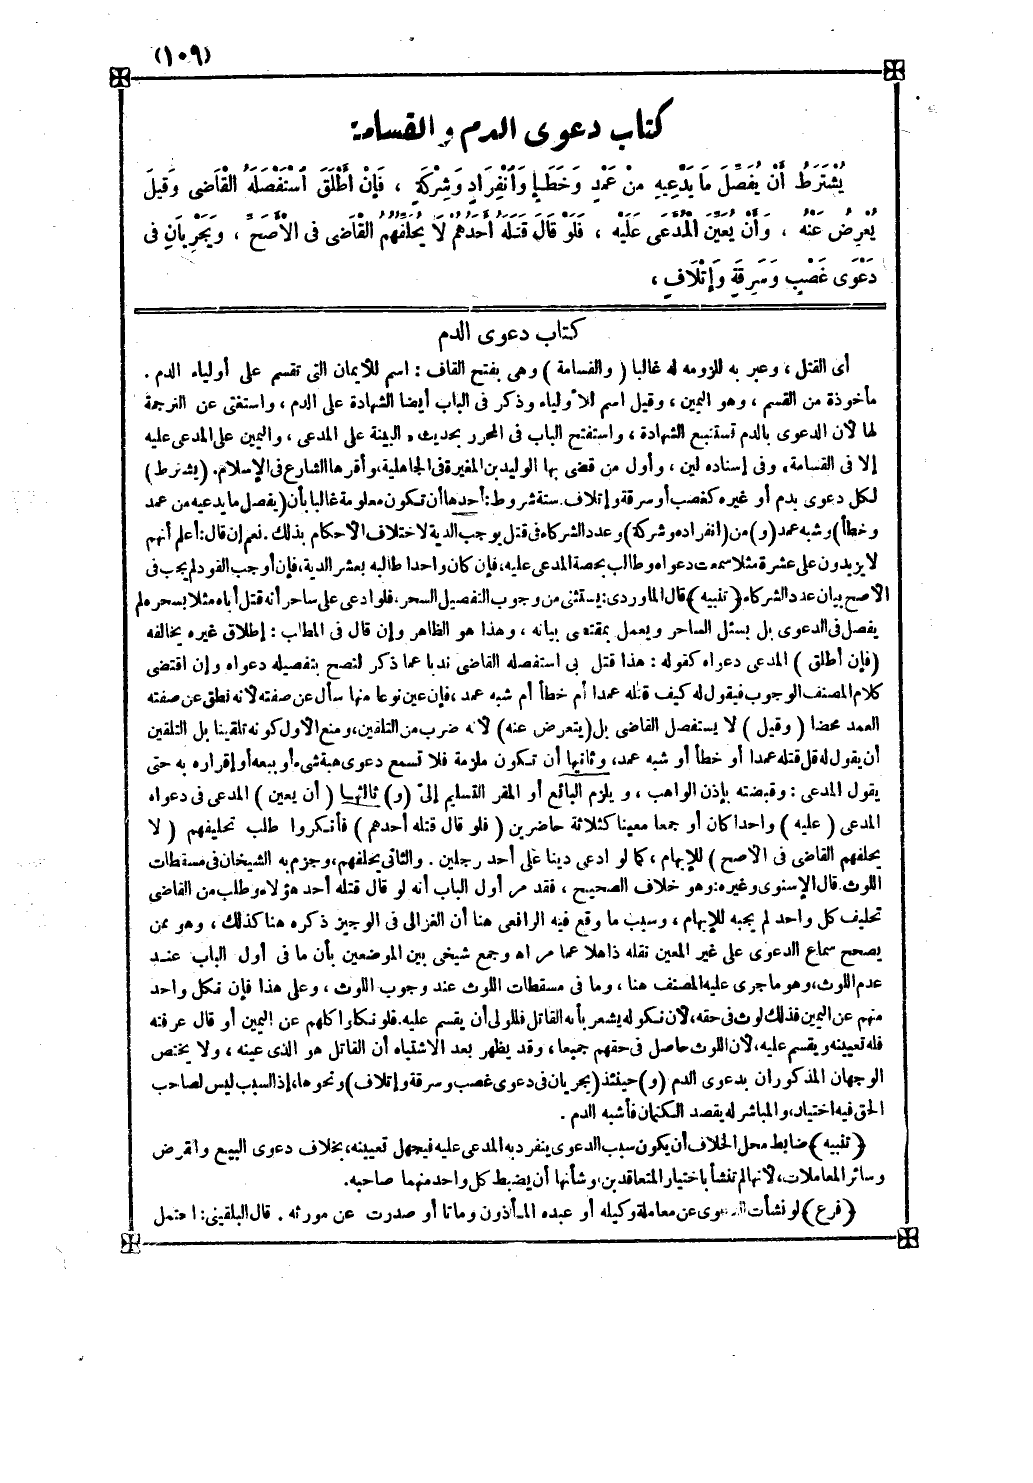 (١٠٩)
كتاب دعوى الدم والقسامة
يُشْتَرَطُ أَنْ يُفَصِّلَ مَا يَدَّعِيهِ مِنْ عَمْدٍ وَخَطَإٍ وَٱنْفِرَادٍ وَشِرْكَةٍ ، فَإِنْ أَطْلَقَ ٱسْتَفْصَلَهُ الْقَاضِى وَقِيلَ
يُعْرِضُ عَنْهُ ، وَأَنْ يُعَيِّنَ الْمُدَّعَى عَلَيْهِ ، فَلَوْ قَالَ قَتَلَهُ أَحَدُهُمْ لَا يُحَلِّفُهُمُ الْقَاضِى فِى الْأَصَحِّ ، وَيَجْرِيَانِ فِى
دَعْوَى غَصْبٍ وَسَرِقَةٍ وَإِتْلَافٍ ،
كتاب دعوى الدم
أى القتل ، وعبر به للزومه له غالبا (والقسامة) وهى بفتح القاف : اسم للأيمان التى تقسم على أولياء الدم .
مأخوذة من القسم ، وهو اليمين ، وقيل اسم للأولياء وذكر فى الباب أيضا الشهادة على الدم ، واستغنى عن الترجمة
لها لأن الدعوى بالدم تستتبع الشهادة ، واستفتح الباب فى المحرر بحديث « البينة على المدعى ، واليمين على المدعى عليه
إلا فى القسامة» وفى إسناده لين ، وأول من قضى بها الوليد بن المغيرة فى الجاهلية، وأقرها الشارع فى الإسلام. (يشترط)
لكل دعوى بدم أو غيره كغصب أو سرقة وإتلاف ـ ستة شروط : أحدها أن تكون معلومة غالبا بأن (يفصل ما يدعيه من عمد
وخطأ) وشبه عمد (و) من (انفراد وشركة) وعدد الشركاء فى قتل يوجب الدية لاختلاف الأحكام بذلك . نعم إن قال: أعلم أنهم
لا يزيدون على عشرة مثلا سمعت دعواه وطالب بحصة المدعى عليه، فإن كان واحدا طالبه بعشر الدية، فإن أوجب القود لم يجب فى
الأصح بيان عدد الشركاء. (تنبيه) قال الماوردى: يستثنى من وجوب التفصيل السحر، فلو ادعى على ساحر أنه قتل أباه مثلا بسحره لم
يفصل فى الدعوى بل يسئل الساحر ويعمل بمقتضى بيانه ، وهذا هو الظاهر وإن قال فى المطلب : إطلاق غيره يخالفه
(فإن أطلق) المدعى دعواه كقوله : هذا قتل أبى استفصله القاضى ندبا عما ذكر لتصح بتفصيله دعواه وإن اقتضى
كلام المصنف الوجوب فيقول له كيف قتله عمدا أم خطأ أم شبه عمد ، فإن عين نوعا منها سأل عن صفته لأنه نطق عن صفته
العمد محضا (وقيل) لا يستفصل القاضى بل (يتعرض عنه) لأنه ضرب من التلقين، ومنع الأول كونه تلقينا بل التلقين
أن يقول له قل قتله عمدا أو خطأ أو شبه عمد، وثانيها أن تكون ملزمة فلا تسمع دعوى هبة شىء أو بيعه أو إقراره به حتى
يقول المدعى : وقبضته بإذن الواهب ، ويلزم البائع أو المقر التسليم إلىّ (و) ثالثها (أن يعين) المدعى فى دعواه
المدعى (عليه) واحدا كان أو جمعا معينا كثلاثة حاضرين (فلو قال قتله أحدهم) فأنكروا طلب تحليفهم (لا
يحلفهم القاضى فى الأصح) للإبهام ، كما لو ادعى دينا على أحد رجلين . والثانى يحلفهم، وجزم به الشيخان فى مسقطات
اللوث. قال الإسنوى وغيره: وهو خلاف الصحيح ، فقد مر أول الباب أنه لو قال قتله أحد هؤلاء وطلب من القاضى
تحليف كل واحد لم يجبه للإبهام ، وسبب ما وقع فيه الرافعى هنا أن الغزالى فى الوجيز ذكره هنا كذلك ، وهو ممن
يصحح سماع الدعوى على غير المعين نقله ذاهلا عما مر اه وجمع شيخى بين الموضعين بأن ما فى أول الباب عنـد
عدم اللوث، وهو ماجرى عليه المصنف هنا ، وما فى مسقطات اللوث عند وجوب اللوث ، وعلى هذا فإن نكل واحد
منهم عن اليمين فذلك لوث فى حقه، لأن نكوله يشعر بأنه القاتل فللولى أن يقسم عليه. فلو نكلوا كلهم عن اليمين أو قال عرفته
فله تعيينه ويقسم عليه، لأن اللوث حاصل فى حقهم جميعا ، وقد يظهر بعد الاشتباه أن القاتل هو الذى عينه ، ولا يختص
الوجهان المذكوران بدعوى الدم (و) حينئذ (يجريان فى دعوى غصب وسرقة وإتلاف) ونحوها، إذ السبب ليس لصاحب
الحق فيه اختيار، والمباشر له يقصد الكتمان فأشبه الدم .
(تنبيه) ضابط محل الخلاف أن يكون سبب الدعوى ينفرد به المدعى عليه فيجهل تعيينه، بخلاف دعوى البيع والقرض
وسائر المعاملات، لأنها لم تنشأ باختيار المتعاقدين، وشأنها أن يضبط كل واحد منهما صاحبه.
(فرع) لو نشأت الدعوى عن معاملة وكيله أو عبده المأذون وماتا أو صدرت عن مورثه . قال البلقينى: احتمل